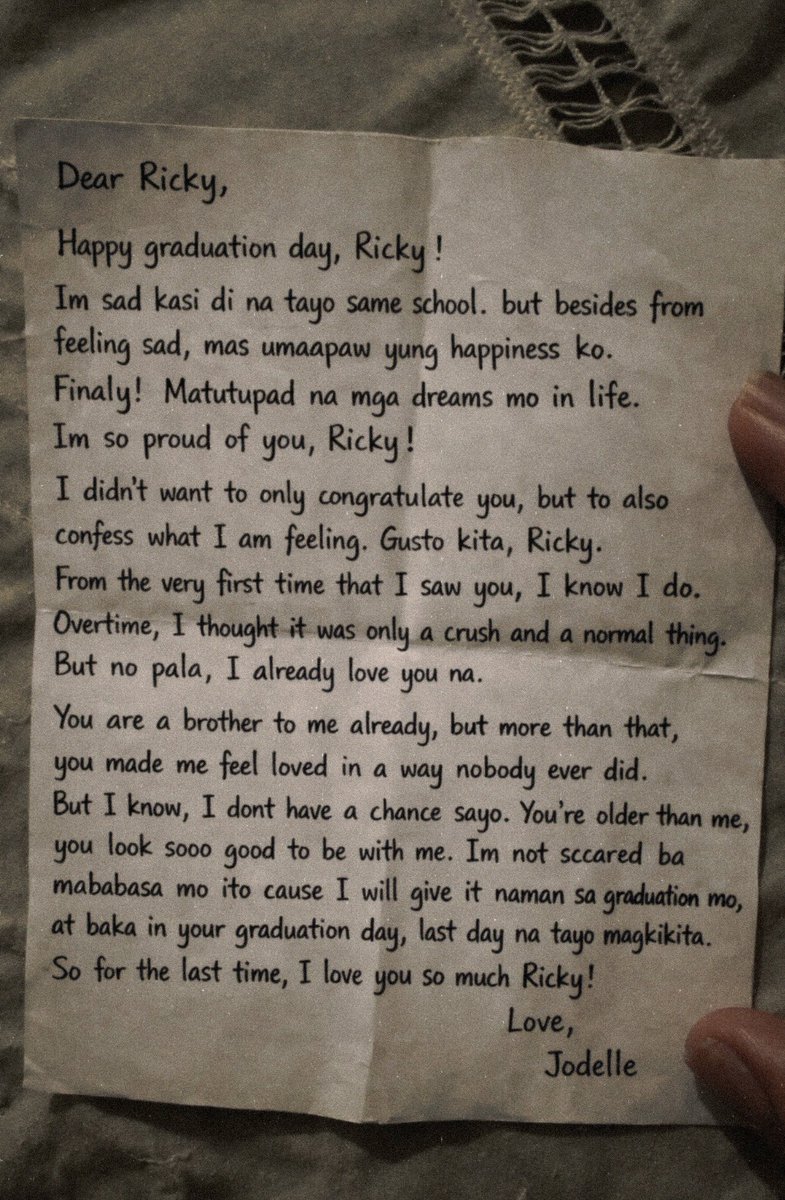 Dear Ricky,
Happy graduation day, Ricky!
Im sad kasi di na tayo same school. but besides from
feeling sad, mas umaapaw yung happiness ko.
Finaly! Matutupad na mga dreams mo in life.
Im so proud of you, Ricky!
I didn't want to only congratulate you, but to also
confess what I am feeling. Gusto kita, Ricky.
From the very first time that I saw you, I know I do.
Overtime, I thought it was only a crush and a normal thing.
But no pala, I already love you na.
You are a brother to me already, but more than that,
you made me feel loved in a way nobody ever did.
But I know, I dont have a chance sayo. You're older than me,
you look sooo good to be with me. Im not sccared ba
mababasa mo ito cause I will give it naman sa graduation mo,
at baka in your graduation day, last day na tayo magkikita.
So for the last time, I love you so much Ricky!
Love,
Jodelle